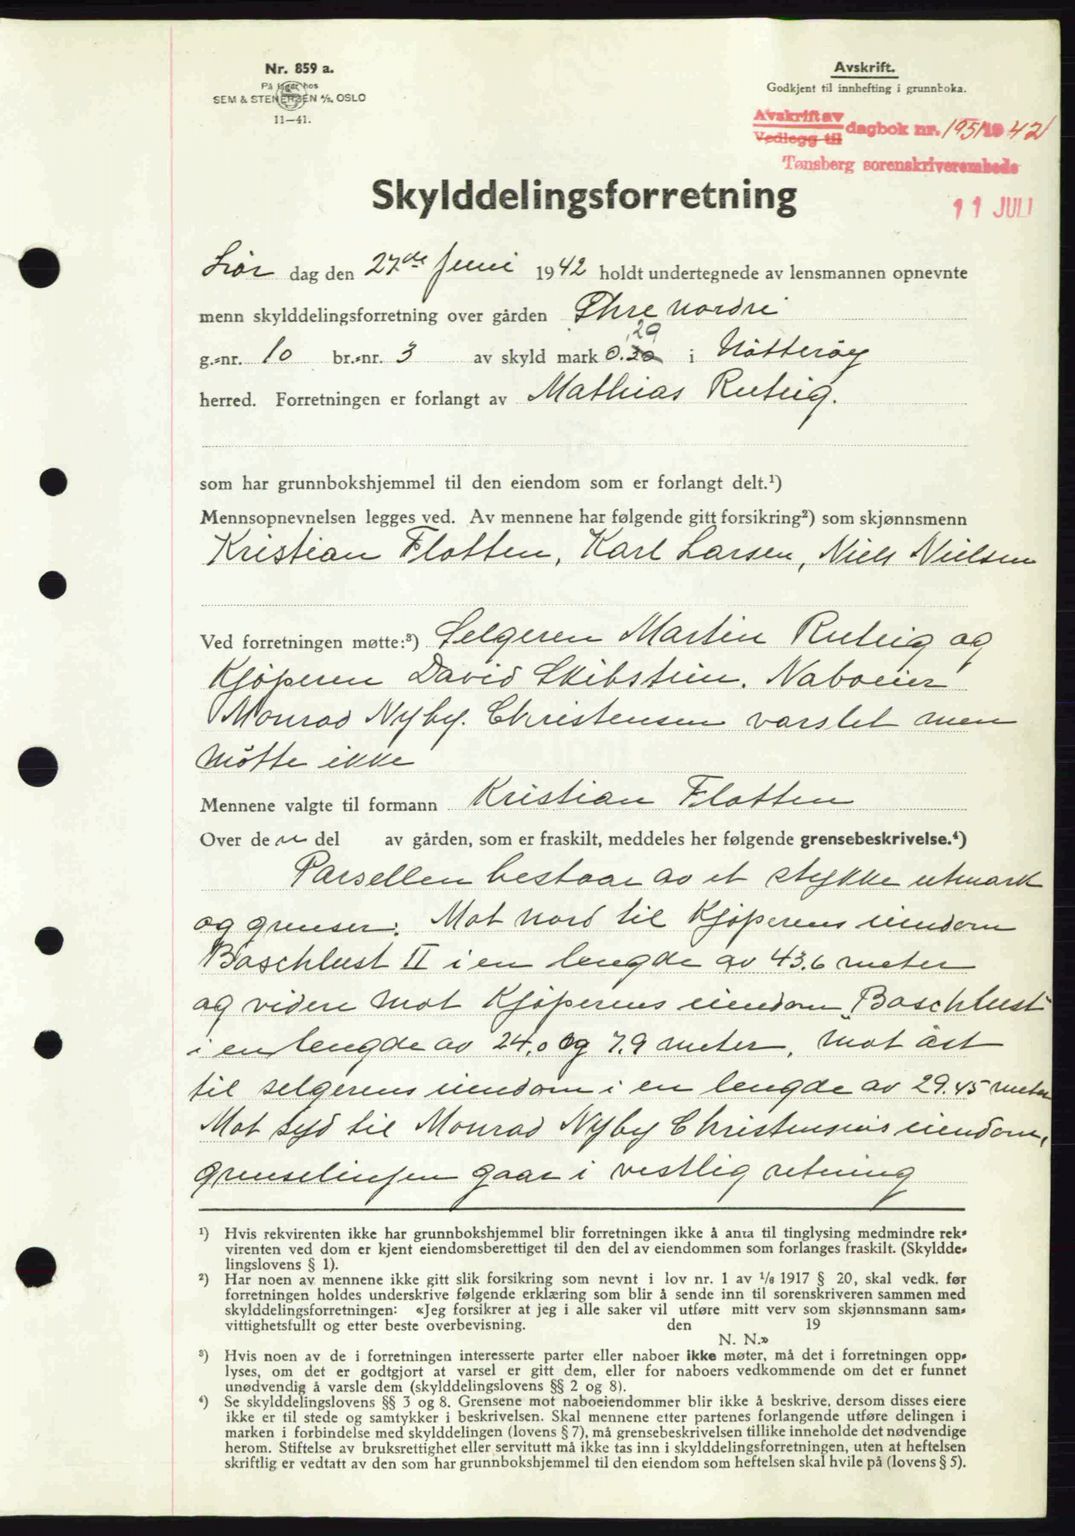 Nr. 859 a.
På lager hos
SEM & STENERSEN A/S, OSLO
11—41.
Avskrift.
Godkjent til innhefting i grunnboka.
Avskrift av
Vedlegg til dagbok nr. 1951 1942
Tønsberg sorenskriverembede
11 JULI
Skylddelingsforretning
Lør dag den 27de Juni 1942 holdt undertegnede av lensmannen opnevnte
menn skylddelingsforretning over gården Thre nordre
29
g.-nr. 10 br.-nr. 3 av skyld mark 0.30 i Nøtterøy
herred. Forretningen er forlangt av Mathias Ruteig.
som har grunnbokshjemmel til den eiendom som er forlangt delt.¹)
Mennsopnevnelsen legges ved. Av mennene har følgende gitt forsikring²) som skjønnsmenn
Kristian Flotten, Karl Larsen, Niels Nielsen
Ved forretningen møtte:³) Selgeren Martin Ruteig og
Kjøperen David Skibstein. Naboeier
Monrad Nyby. Christensen varslet men
møtte ikke
Mennene valgte til formann Kristian Flotten
Over den del av gården, som er fraskilt, meddeles her følgende grensebeskrivelse.⁴)
Parsellen bestaar av et stykke utmark
og grenser: Mot nord til Kjøperens eiendom
Baschlust II i en lengde av 43,6 meter
og videre mot Kjøperens eiendom "Baschlust"
i en lengde av 24,0 og 7,9 meter, mot øst
til selgerens eiendom i en lengde av 29.45 meter
Mot syd til Monrad Nyby Christensens eiendom,
grenselinjen gaar i vestlig retning
¹) Hvis rekvirenten ikke har grunnbokshjemmel blir forretningen ikke å anta til tinglysing medmindre rek-
virenten ved dom er kjent eiendomsberettiget til den del av eiendommen som forlanges fraskilt. (Skyldde-
lingslovens § 1).
²) Har noen av mennene ikke gitt slik forsikring som nevnt i lov nr. 1 av 1/6 1917 § 20, skal vedk. før
forretningen holdes underskrive følgende erklæring som blir å sende inn til sorenskriveren sammen med
skylddelingsforretningen: «Jeg forsikrer at jeg i alle saker vil utføre mitt verv som skjønnsmann sam-
vittighetsfullt og etter beste overbevisning. den 19
N. N.»
³) Hvis noen av de i forretningen interesserte parter eller naboer ikke møter, må det i forretningen opp-
lyses, om det er godtgjort at varsel er gitt dem, eller for naboers vedkommende om det er funnet
unødvendig å varsle dem (skylddelingslovens §§ 2 og 8).
⁴) Se skylddelingslovens §§ 3 og 8. Grensene mot naboeiendommer blir ikke å beskrive, dersom disses eiere
ikke er til stede og samtykker i beskrivelsen. Skal mennene etter partenes forlangende utføre delingen i
marken i forbindelse med skylddelingen (lovens § 7), må grensebeskrivelsen tillike inneholde det nødvendige
herom. Stiftelse av bruksrettighet eller servitutt må ikke tas inn i skylddelingsforretningen, uten at heftelsen
skriftlig er vedtatt av den som har grunnbokshjemmel til den eiendom som heftelsen skal hvile på (lovens § 5).